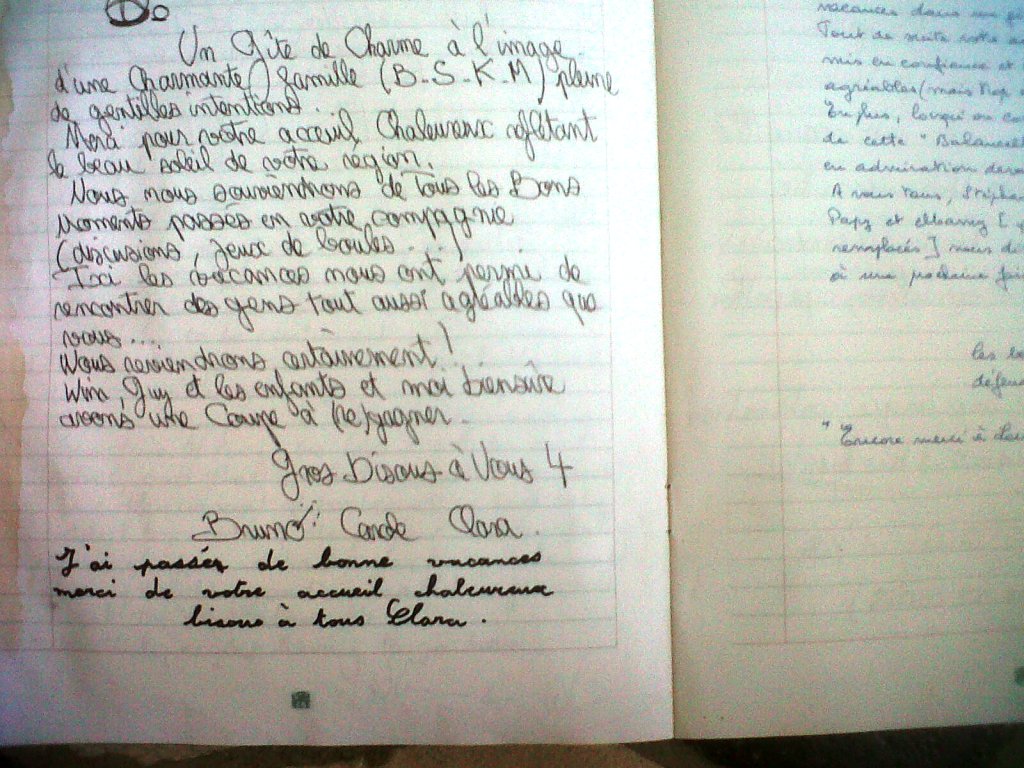 Un Gîte de Charme à l'image
d'une Charmante famille (B-S-K-M) pleine
de gentilles intentions.
Merci pour votre acceuil Chaleureux reflétant
le beau soleil de votre région.
Nous nous souviendrons de tous les Bons
Moments passés en votre compagnie
(discusions, jeux de boules ....)
Ici les vacances nous ont permie de
rencontrer des gens tout aussi agréables que
vous....
Nous reviendrons certainement !
Wim, Guy et les enfants et moi bensûre
avons une Coupe à (re)gagner.
Gros Bisous à Vous 4
Bruno Carole Clara.
J'ai passér de bonne vacances
merci de votre accueil chaleureux
bisous à tous Clara.
vacances dans un
Tout de suite votre
mis en confiance et
agréables (mais trop
En plus, lorsqu'on
de cette "
en admiration
A vous tous,
Papy et Mamy [
remplacés] nous
à une prochaine fois
les
"Encore merci à